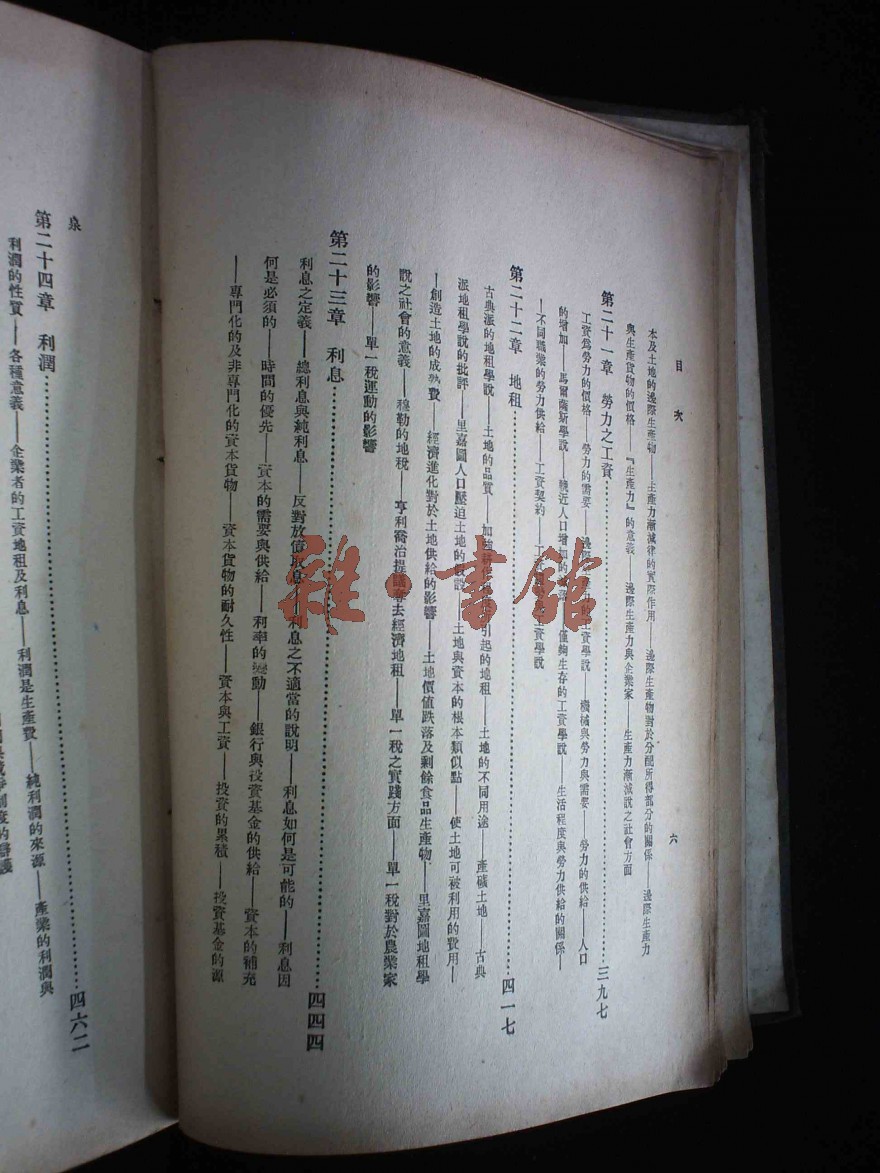 目次
六
本及土地的邊際生產物——生產力漸減律的實際作用——邊際生產物對於分配所得部分的關係——邊際生產力
與生產貨物的價格——『生產力』的意義——邊際生產力與企業家——生產力漸減說之社會方面
第二十一章 勞力之工資……三九七
工資為勞力的價格——勞力的需要——邊際 的工資學說——機械與勞力與需要——勞力的供給——人口
的增加——馬爾薩斯學說——晚近人口增加的 ——僅夠生存的工資學說——生活程度與勞力供給的關係——
—不同職業的勞力供給——工資契約—— 工資學說
第二十二章 地租……四一七
古典派的地租學說——土地的品質——加強 引起的地租——土地的不同用途——產礦土地——古典
派地租學說的批評——里嘉圖人口壓迫土地的假說——土地與資本的根本類似點——使土地可被利用的費用——
—創造土地的成為費——經濟進化對於土地供給的影響——土地價值跌落及剩餘食品生產物——里嘉圖地租學
說之社會的意義——穆勒的地稅——亨利喬治提議奪去經濟地租——單一稅之實踐方面——單一稅對於農業家
的影響——單一稅運動的影響
第二十三章 利息……四四四
利息之定義——總利息與純利息——反對放債取息——利息之不適當的說明——利息如何是可能的——利息因
何是必須的——時間的優先——資本的需要與供給——利率的變動——銀行與投資基金的供給——資本的補充
——專門化的及非專門化的資本貨物——資本貨物的耐久性——資本與工資——投資的累積——投資基金的源
泉
第二十四章 利潤……四六二
利潤的性質——各種意義——企業者的工資地租及利息——利潤是生產費——純利潤的來源——產業的利潤與
雜·書館